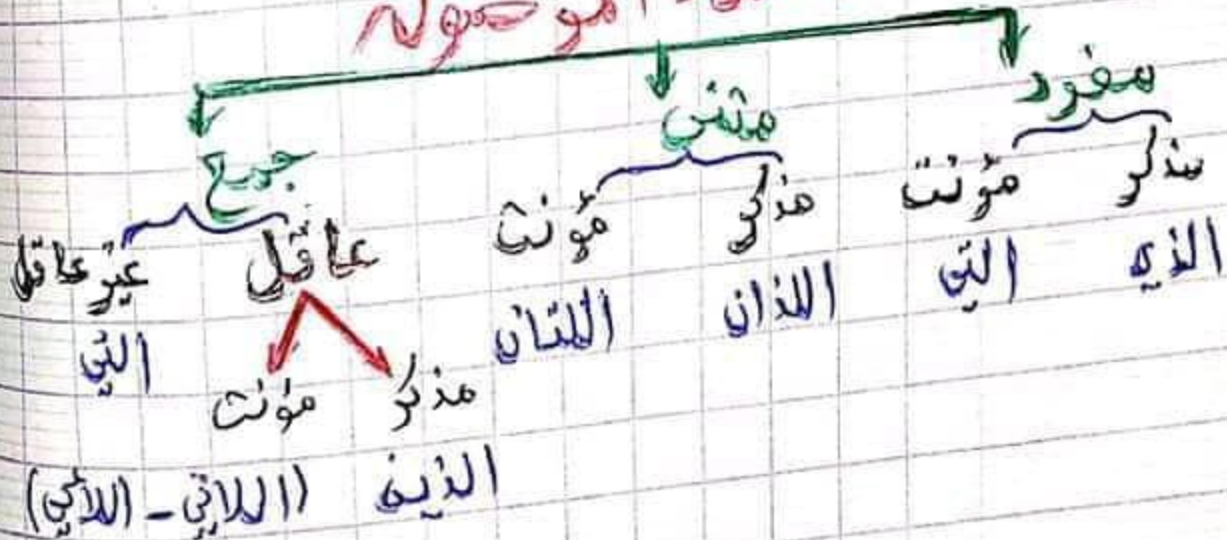 الموصولة
مفرد مثنى جمع
مذكر مؤنث مذكر مؤنث عاقل غير عاقل
الذي التي اللذان اللتان التي
مذكر مؤنث
الذين (اللاتي - اللائي)